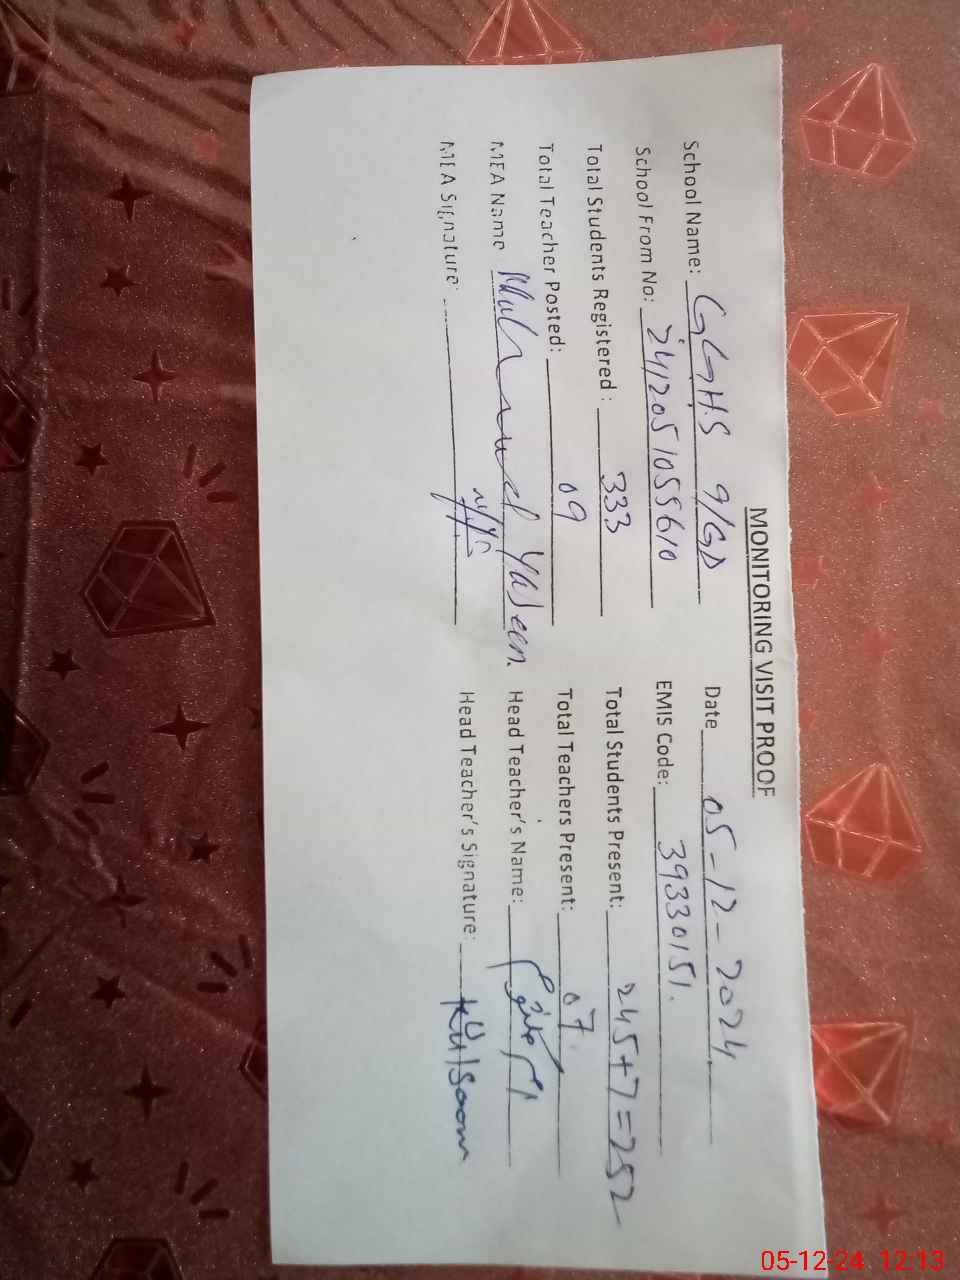 MONITORING VISIT PROOF
School Name: GGHS 9/GD Date 05-12-2024
School From No: 2412051055610 EMIS Code: 39330151.
Total Students Registered : 333 Total Students Present: 245+7=252
Total Teacher Posted: 09 Total Teachers Present: 07
MEA Name Muhammad Yaseen. Head Teacher's Name:
MEA Signature: Head Teacher's Signature: Kulsoom
05-12-24 12:13